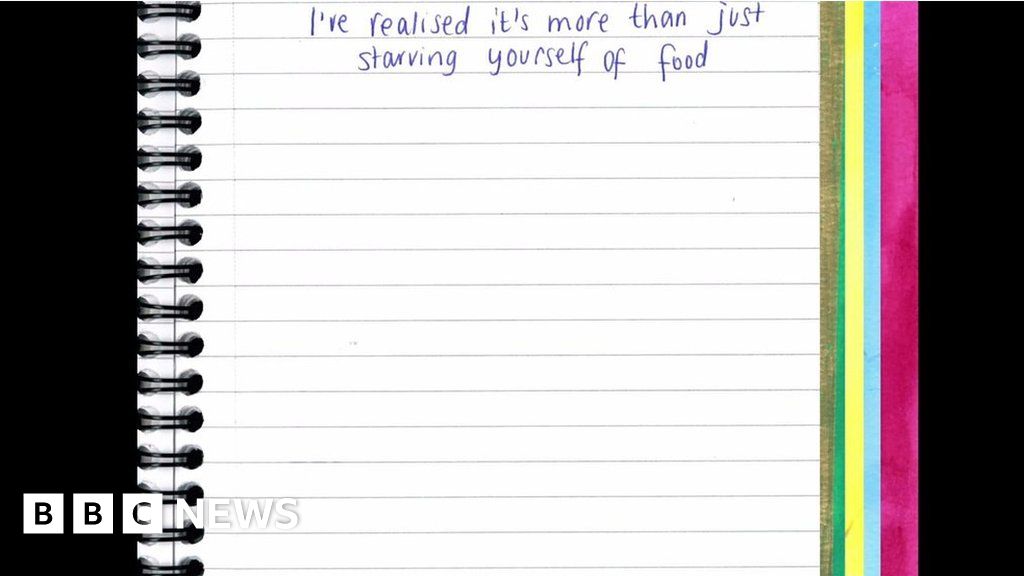 I've realised it's more than just
starving yourself of food
BBC NEWS